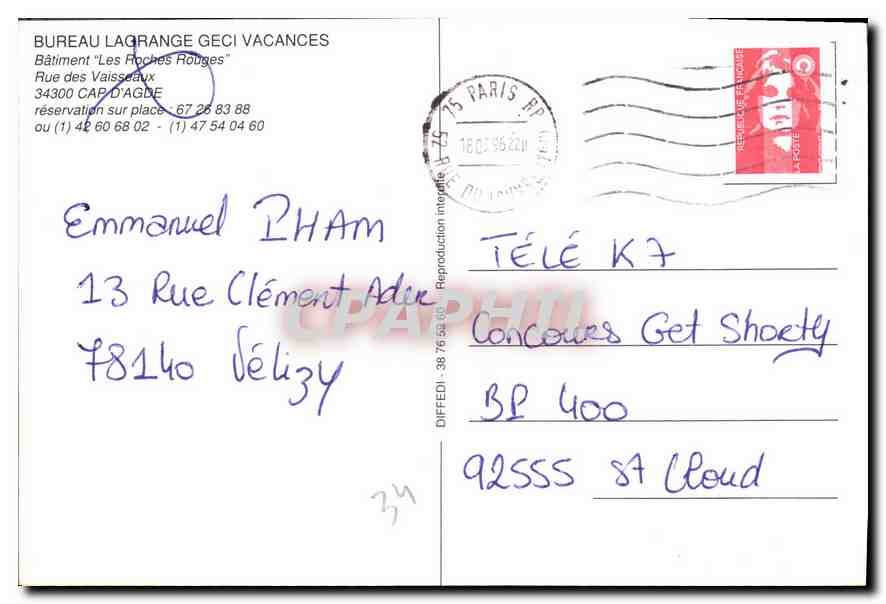 BUREAU LAGRANGE GECI VACANCES
Bâtiment "Les Roches Rouges"
Rue des Vaisseaux
34300 CAP D'AGDE
réservation sur place : 67 26 83 88
ou (1) 42 60 68 02 - (1) 47 54 04 60
Emmanuel PHAM
13 Rue Clément Ader
78140 Vélizy
34
DIFFEDI - 38 76 52 60 Reproduction interdite
75 PARIS RP
52 RUE DU LOUVRE
REPUBLIQUE FRANÇAISE
LA POSTE
TÉLÉ K7
Concours Get Shorty
BP 400
92555 St Cloud
CPAPHIL